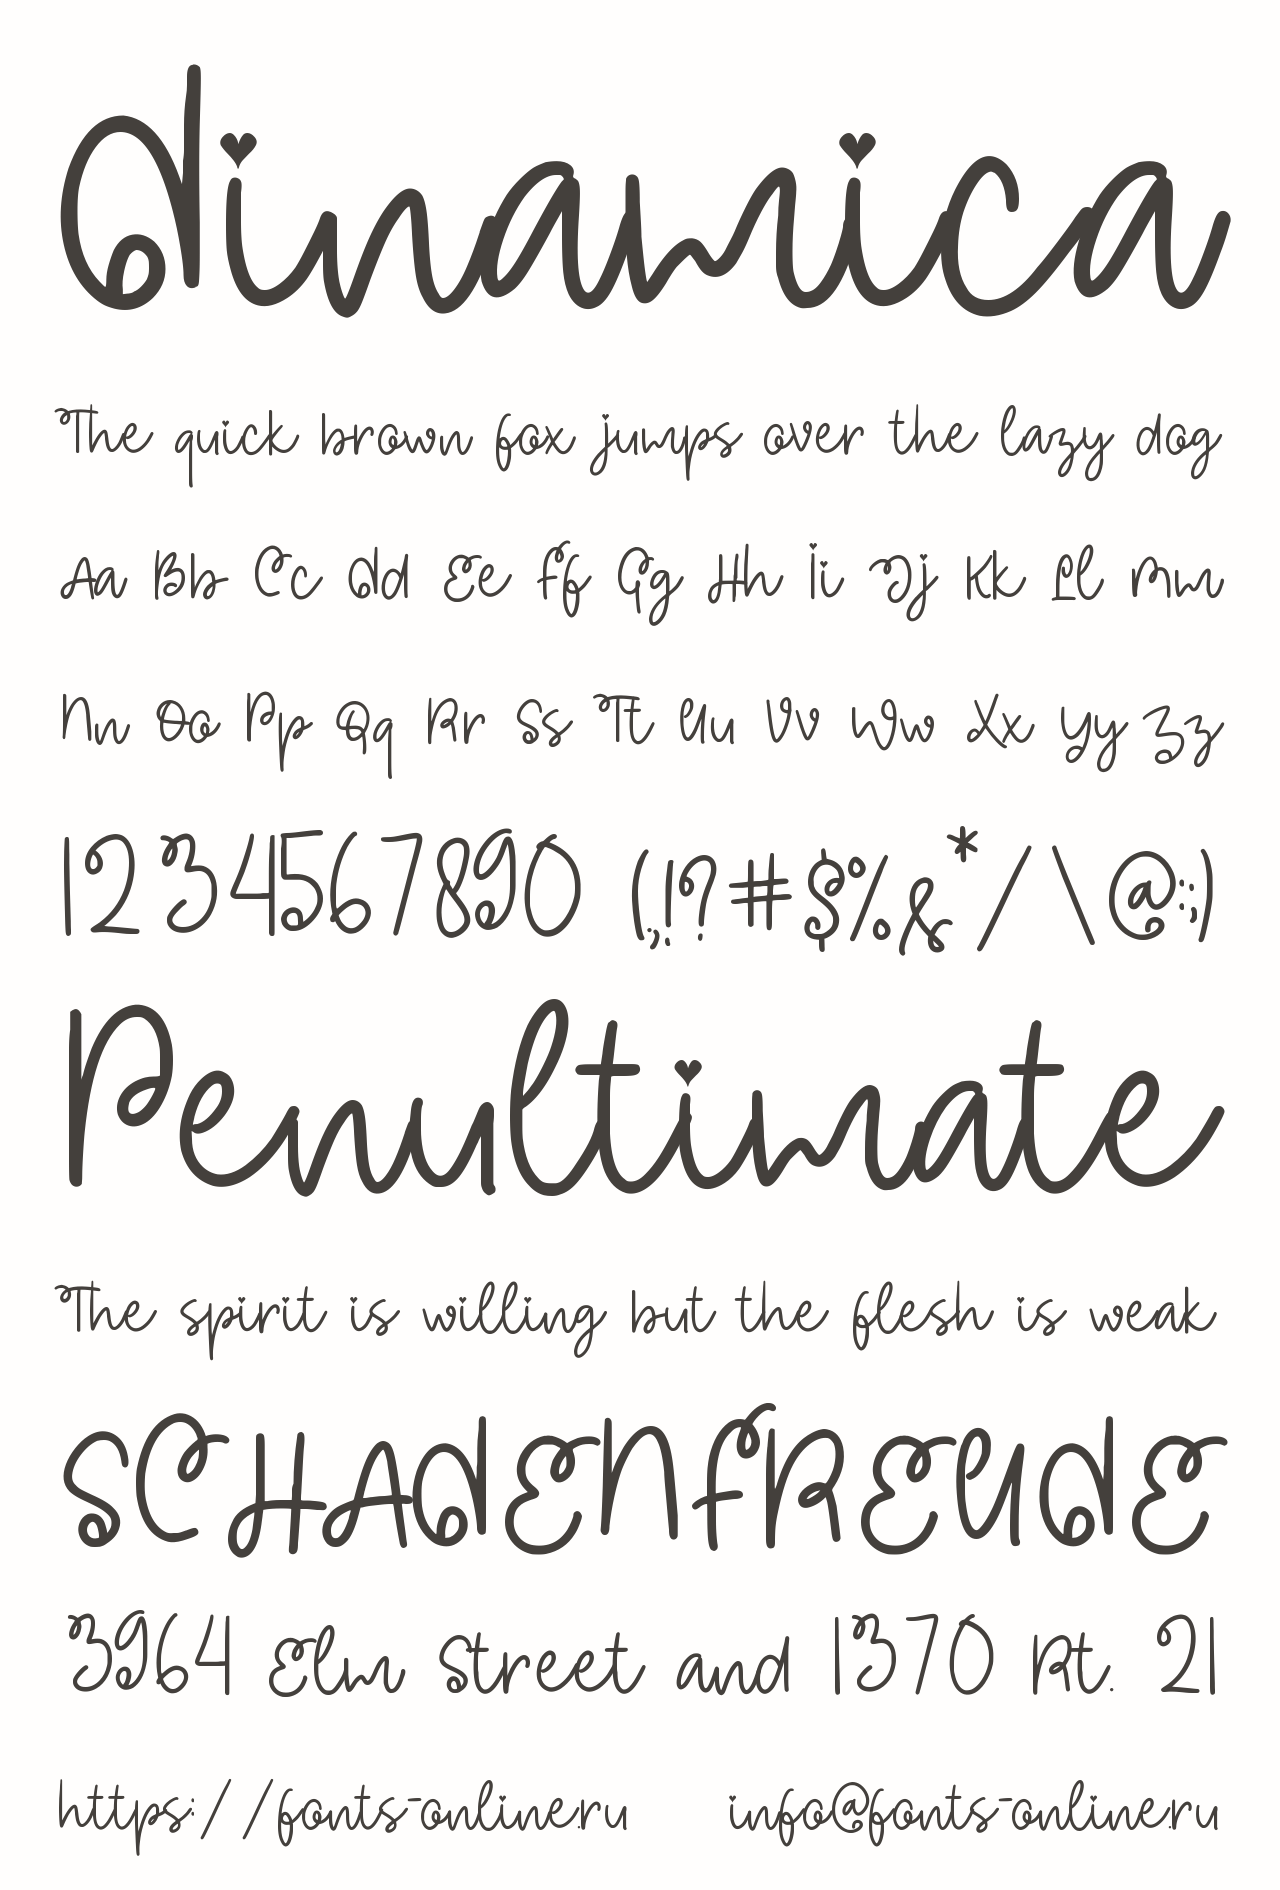 dinamica
The quick brown fox jumps over the lazy dog
Aa Bb Cc Dd Ee Ff Gg Hh Ii Jj Kk Ll Mm
Nn Oo Pp Qq Rr Ss Tt Uu Vv Ww Xx Yy Zz
1234567890 (.,!?#$%&*/\@:;)
Penultimate
The spirit is willing but the flesh is weak
SCHADENFREUDE
3964 Elm Street and 1370 Rt. 21
https://fonts-online.ru info@fonts-online.ru